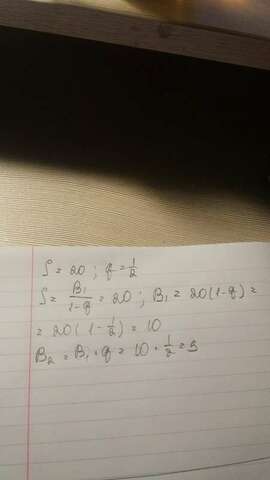 S = 20 ; q = 1/2
S = B₁/1-q = 20 ; B₁ = 20(1-q) =
= 20(1 - 1/2) = 10
B₂ = B₁ · q = 10 · 1/2 = 5